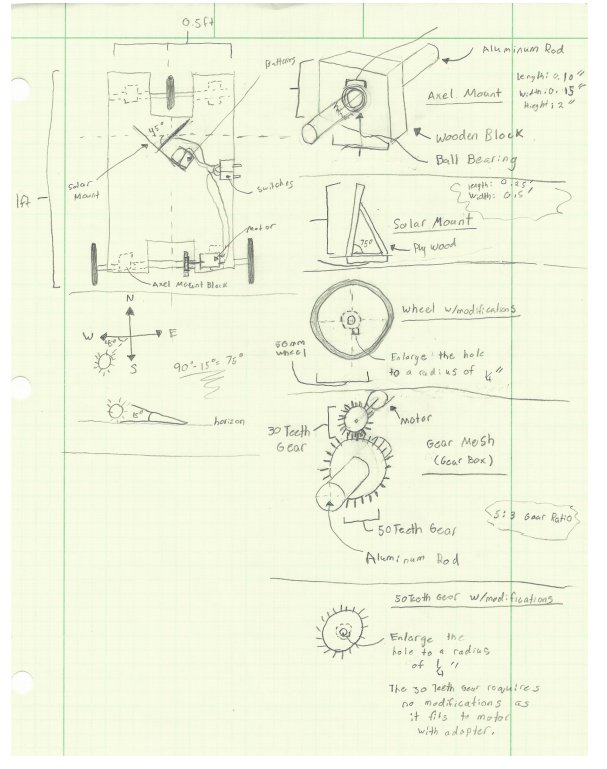 0.5ft
Batteries
45°
Solar
Mount
Switches
1ft
Motor
Axel Mount Block
N
W
E
S
45°
90°-15°= 75°
15°
horizon
Aluminum Rod
Axel Mount
Width: 0.15"
Height: 2"
Wooden Block
Ball Bearing
length: 0.25"
Width: 0.5"
Solar Mount
75°
Ply wood
Wheel w/modifications
50mm
wheel
Enlarge the hole
to a radius of 1/4"
Motor
30 Teeth
Gear
Gear Mesh
(Gear Box)
5:3 Gear Ratio
50 Teeth Gear
Aluminum Rod
50 Teeth Gear w/modifications
Enlarge the
hole to a radius
of 1/4"
The 30 Teeth Gear requires
no modifications as
it fits to motor
with adapter.